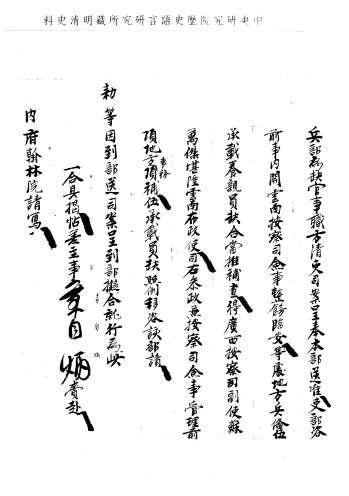 中央研究院歷史語言研究所藏明清史料
兵部為缺官事職方清吏司案呈奉本部送准吏部咨
前事内開雲南按察司僉事整飭臨安等處地方兵備伍
承載養親員缺合當推補查得廣西按察司副使蘇
萬傑堪陞雲南布政使司右參政兼按察司僉事管理前
項地方事務頂補伍承載員缺照例移咨該部請
勅等因到部送司案呈到部擬合就行為此
一合具揭帖差主事 炳賫赴
内府翰林院請寫